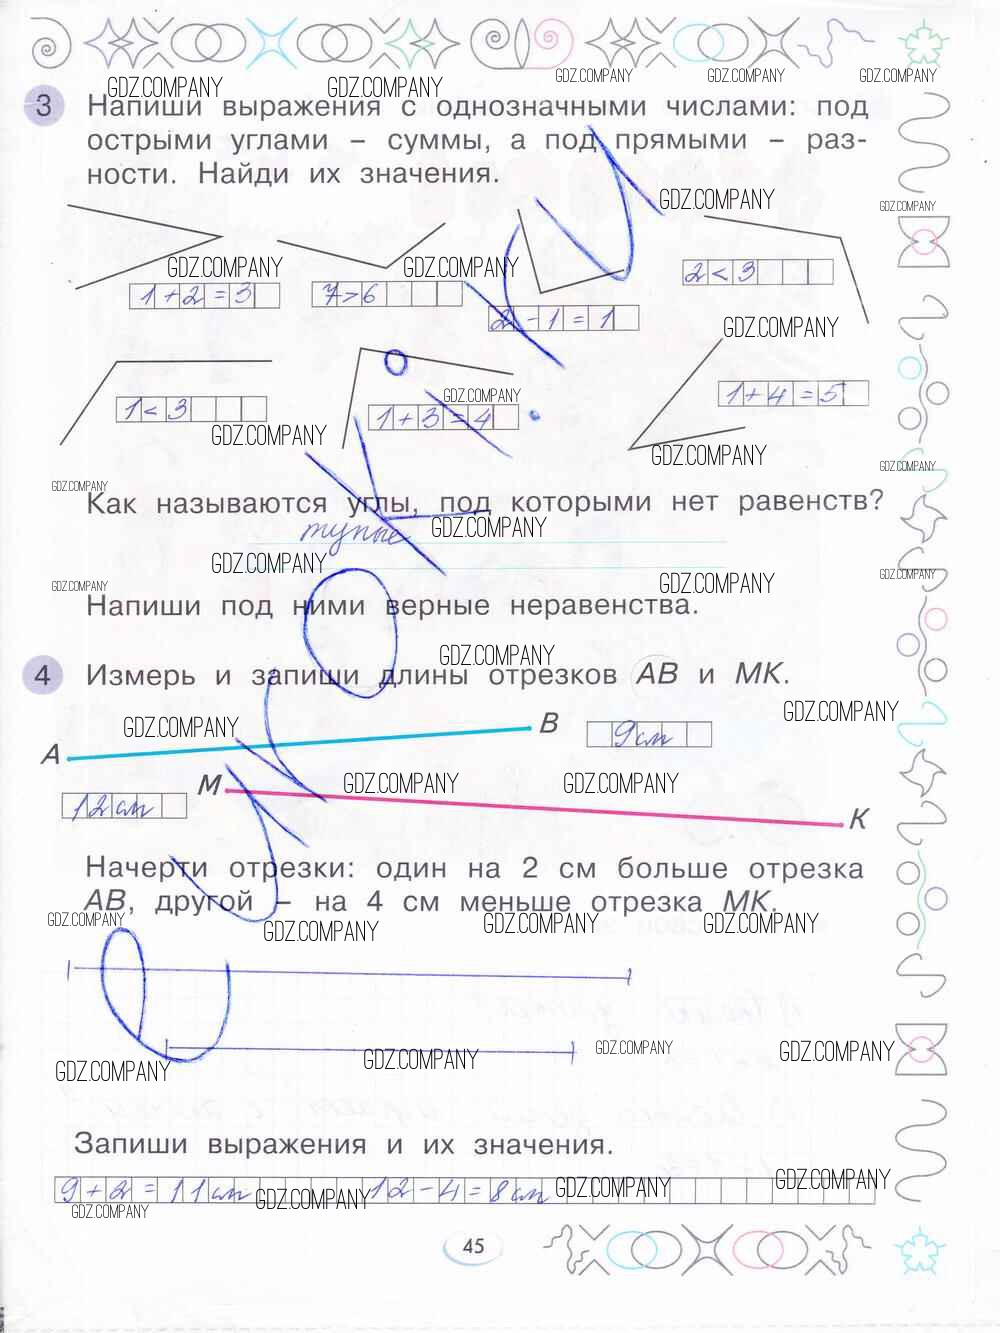 GDZ.COMPANY GDZ.COMPANY GDZ.COMPANY GDZ.COMPANY GDZ.COMPANY
3 Напиши выражения с однозначными числами: под
острыми углами – суммы, а под прямыми – раз-
ности. Найди их значения.
GDZ.COMPANY GDZ.COMPANY
GDZ.COMPANY GDZ.COMPANY
1+2=3 7>6 2-1=1 2<3
GDZ.COMPANY
GDZ.COMPANY
1<3 1+3=4 1+4=5
GDZ.COMPANY GDZ.COMPANY GDZ.COMPANY
GDZ.COMPANY
Как называются углы, под которыми нет равенств?
тупые GDZ.COMPANY
GDZ.COMPANY GDZ.COMPANY GDZ.COMPANY GDZ.COMPANY
Напиши под ними верные неравенства.
GDZ.COMPANY
4 Измерь и запиши длины отрезков AB и MK.
GDZ.COMPANY GDZ.COMPANY
A B 9см
GDZ.COMPANY GDZ.COMPANY
12см M K
Начерти отрезки: один на 2 см больше отрезка
AB, другой – на 4 см меньше отрезка MK.
GDZ.COMPANY GDZ.COMPANY GDZ.COMPANY GDZ.COMPANY
GDZ.COMPANY GDZ.COMPANY GDZ.COMPANY GDZ.COMPANY
Запиши выражения и их значения.
9+2=11см 12-4=8см
GDZ.COMPANY GDZ.COMPANY GDZ.COMPANY GDZ.COMPANY
45
eurokі.ru